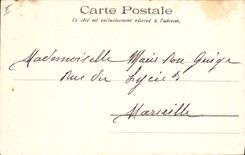 Carte Postale
Ce côté est exclusivement réservé à l'adresse.
Mademoiselle
Rue du Lycée
Marseille